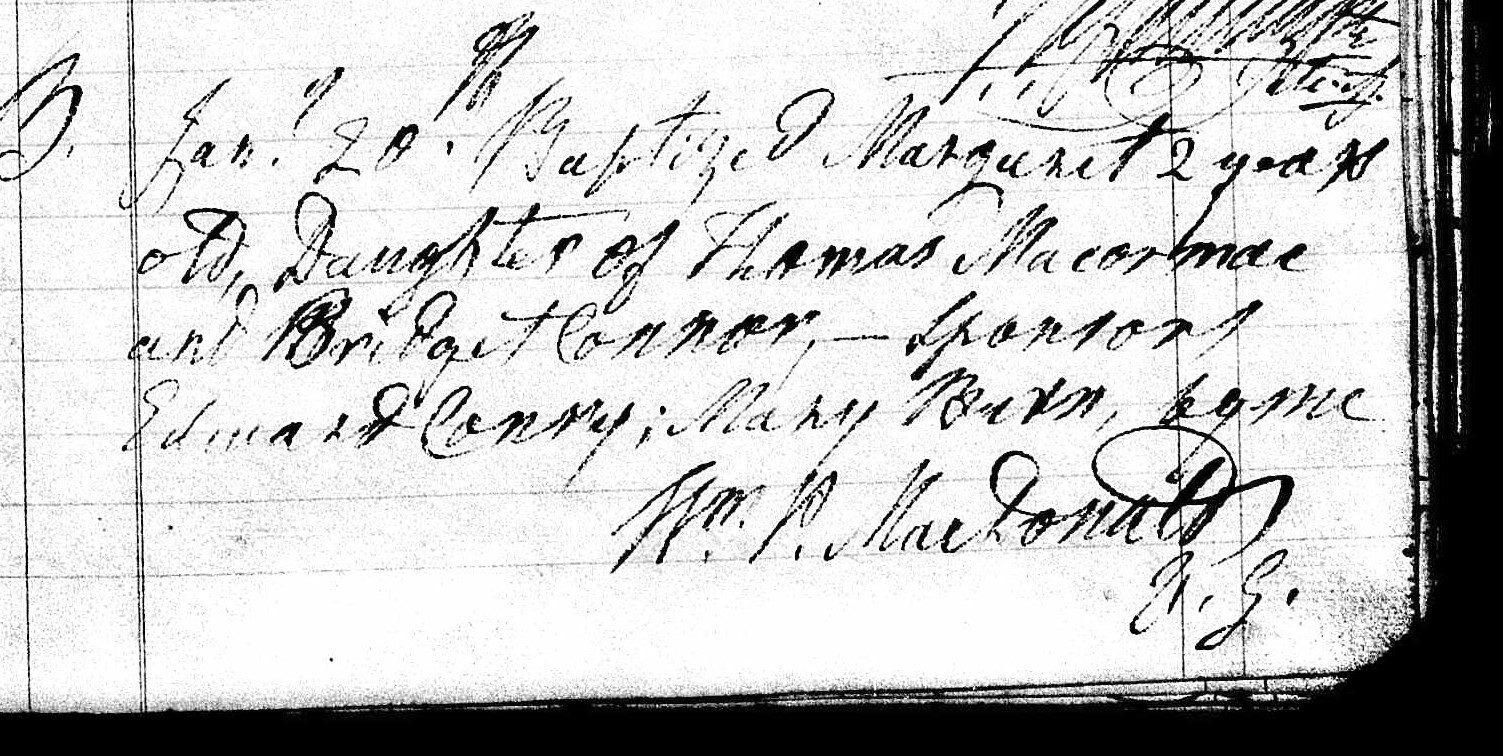 B. Jan.y 20.th Baptized Margaret 2 years
old, Daughter of Thomas Macormac
and Bridget Connor, — Sponsors
Edward Conry; Mary Burn, by me
Wm. P. MacDonald
V. G.